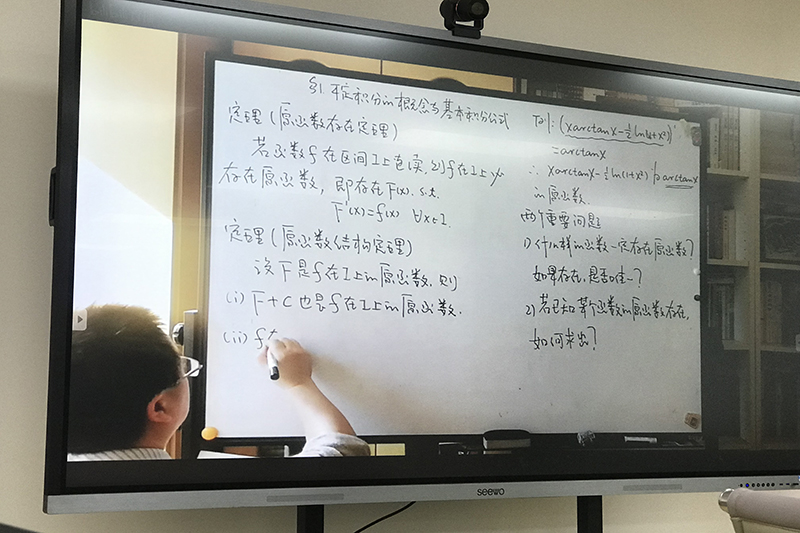 §1 不定积分的概念与基本积分公式
定理(原函数存在定理)
若函数f在区间I上连续,则f在I上必
存在原函数,即存在F(x). s.t.
F'(x)=f(x) ∀x∈I.
定理(原函数结构定理)
设F是f在I上的原函数,则
(i) F+C也是f在I上的原函数.
(ii) f在
例: (xarctanx-½ln(1+x²))'
=arctanx
∴ xarctanx-½ln(1+x²)为arctanx
的原函数.
两个重要问题
1) 什么样的函数一定存在原函数?
如果存在,是否唯一?
2) 若已知某个函数的原函数存在,
如何求出?
seewo